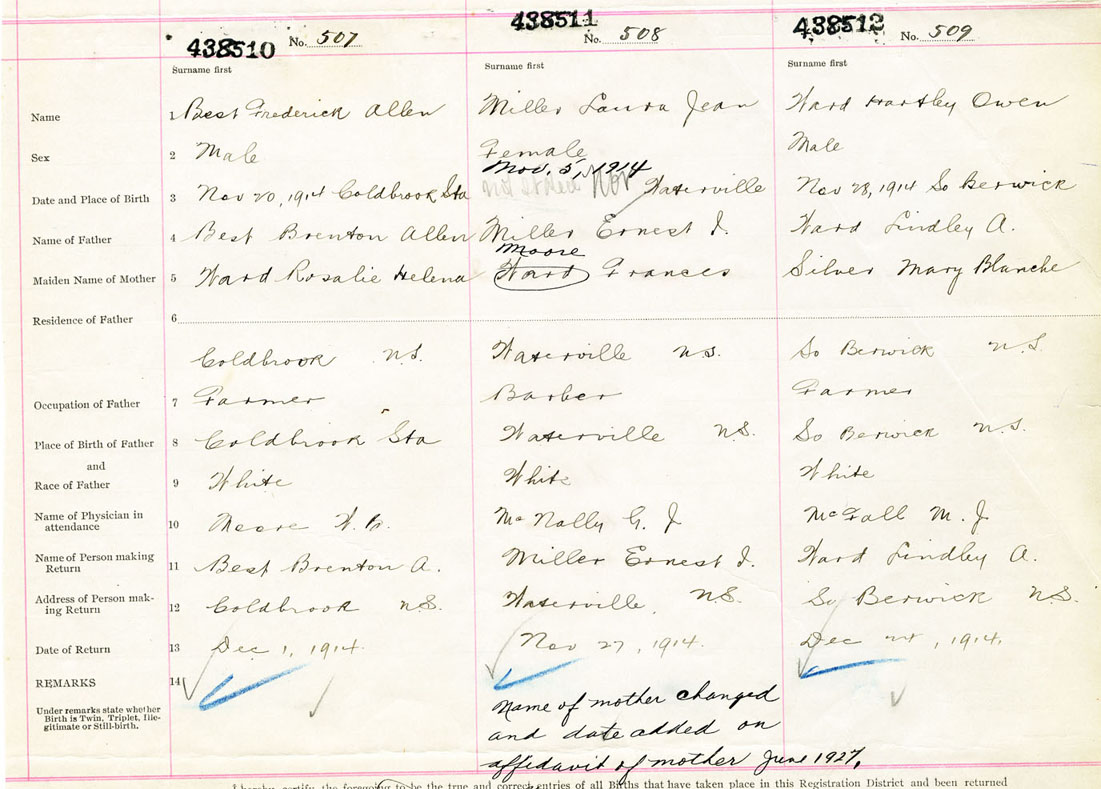 438510 No. 507 438511 No. 508 438512 No. 509
Surname first Surname first Surname first
Name 1 Best Frederick Allen Miller Laura Jean Ward Hartley Owen
Sex 2 Male Female Male
Nov. 5, 1914
Date and Place of Birth 3 Nov 20, 1914 Coldbrook Sta not stated Nov Waterville Nov 28, 1914 So Berwick
Name of Father 4 Best Brenton Allen Miller Ernest I. Ward Lindley A.
Moore
Maiden Name of Mother 5 Ward Rosalie Helena Ward Frances Silver Mary Blanche
Residence of Father 6
Coldbrook N.S. Waterville N.S. So Berwick N.S.
Occupation of Father 7 Farmer Barber Farmer
Place of Birth of Father 8 Coldbrook Sta Waterville N.S. So Berwick N.S.
and
Race of Father 9 White White White
Name of Physician in
attendance 10 Moore W. McNally G. J McFall M. J
Name of Person making
Return 11 Best Brenton A. Miller Ernest I. Ward Lindley A.
Address of Person mak-
ing Return 12 Coldbrook N.S. Waterville, N.S. So Berwick N.S.
Date of Return 13 Dec 1, 1914. Nov 27, 1914. Dec , 1914.
REMARKS 14
Under remarks state whether
Birth is Twin, Triplet, Ille-
gitimate or Still-birth.
Name of mother changed
and date added on
affidavit of mother June 1927.
I hereby certify the foregoing to be the true and correct entries of all Births that have taken place in this Registration District and been returned